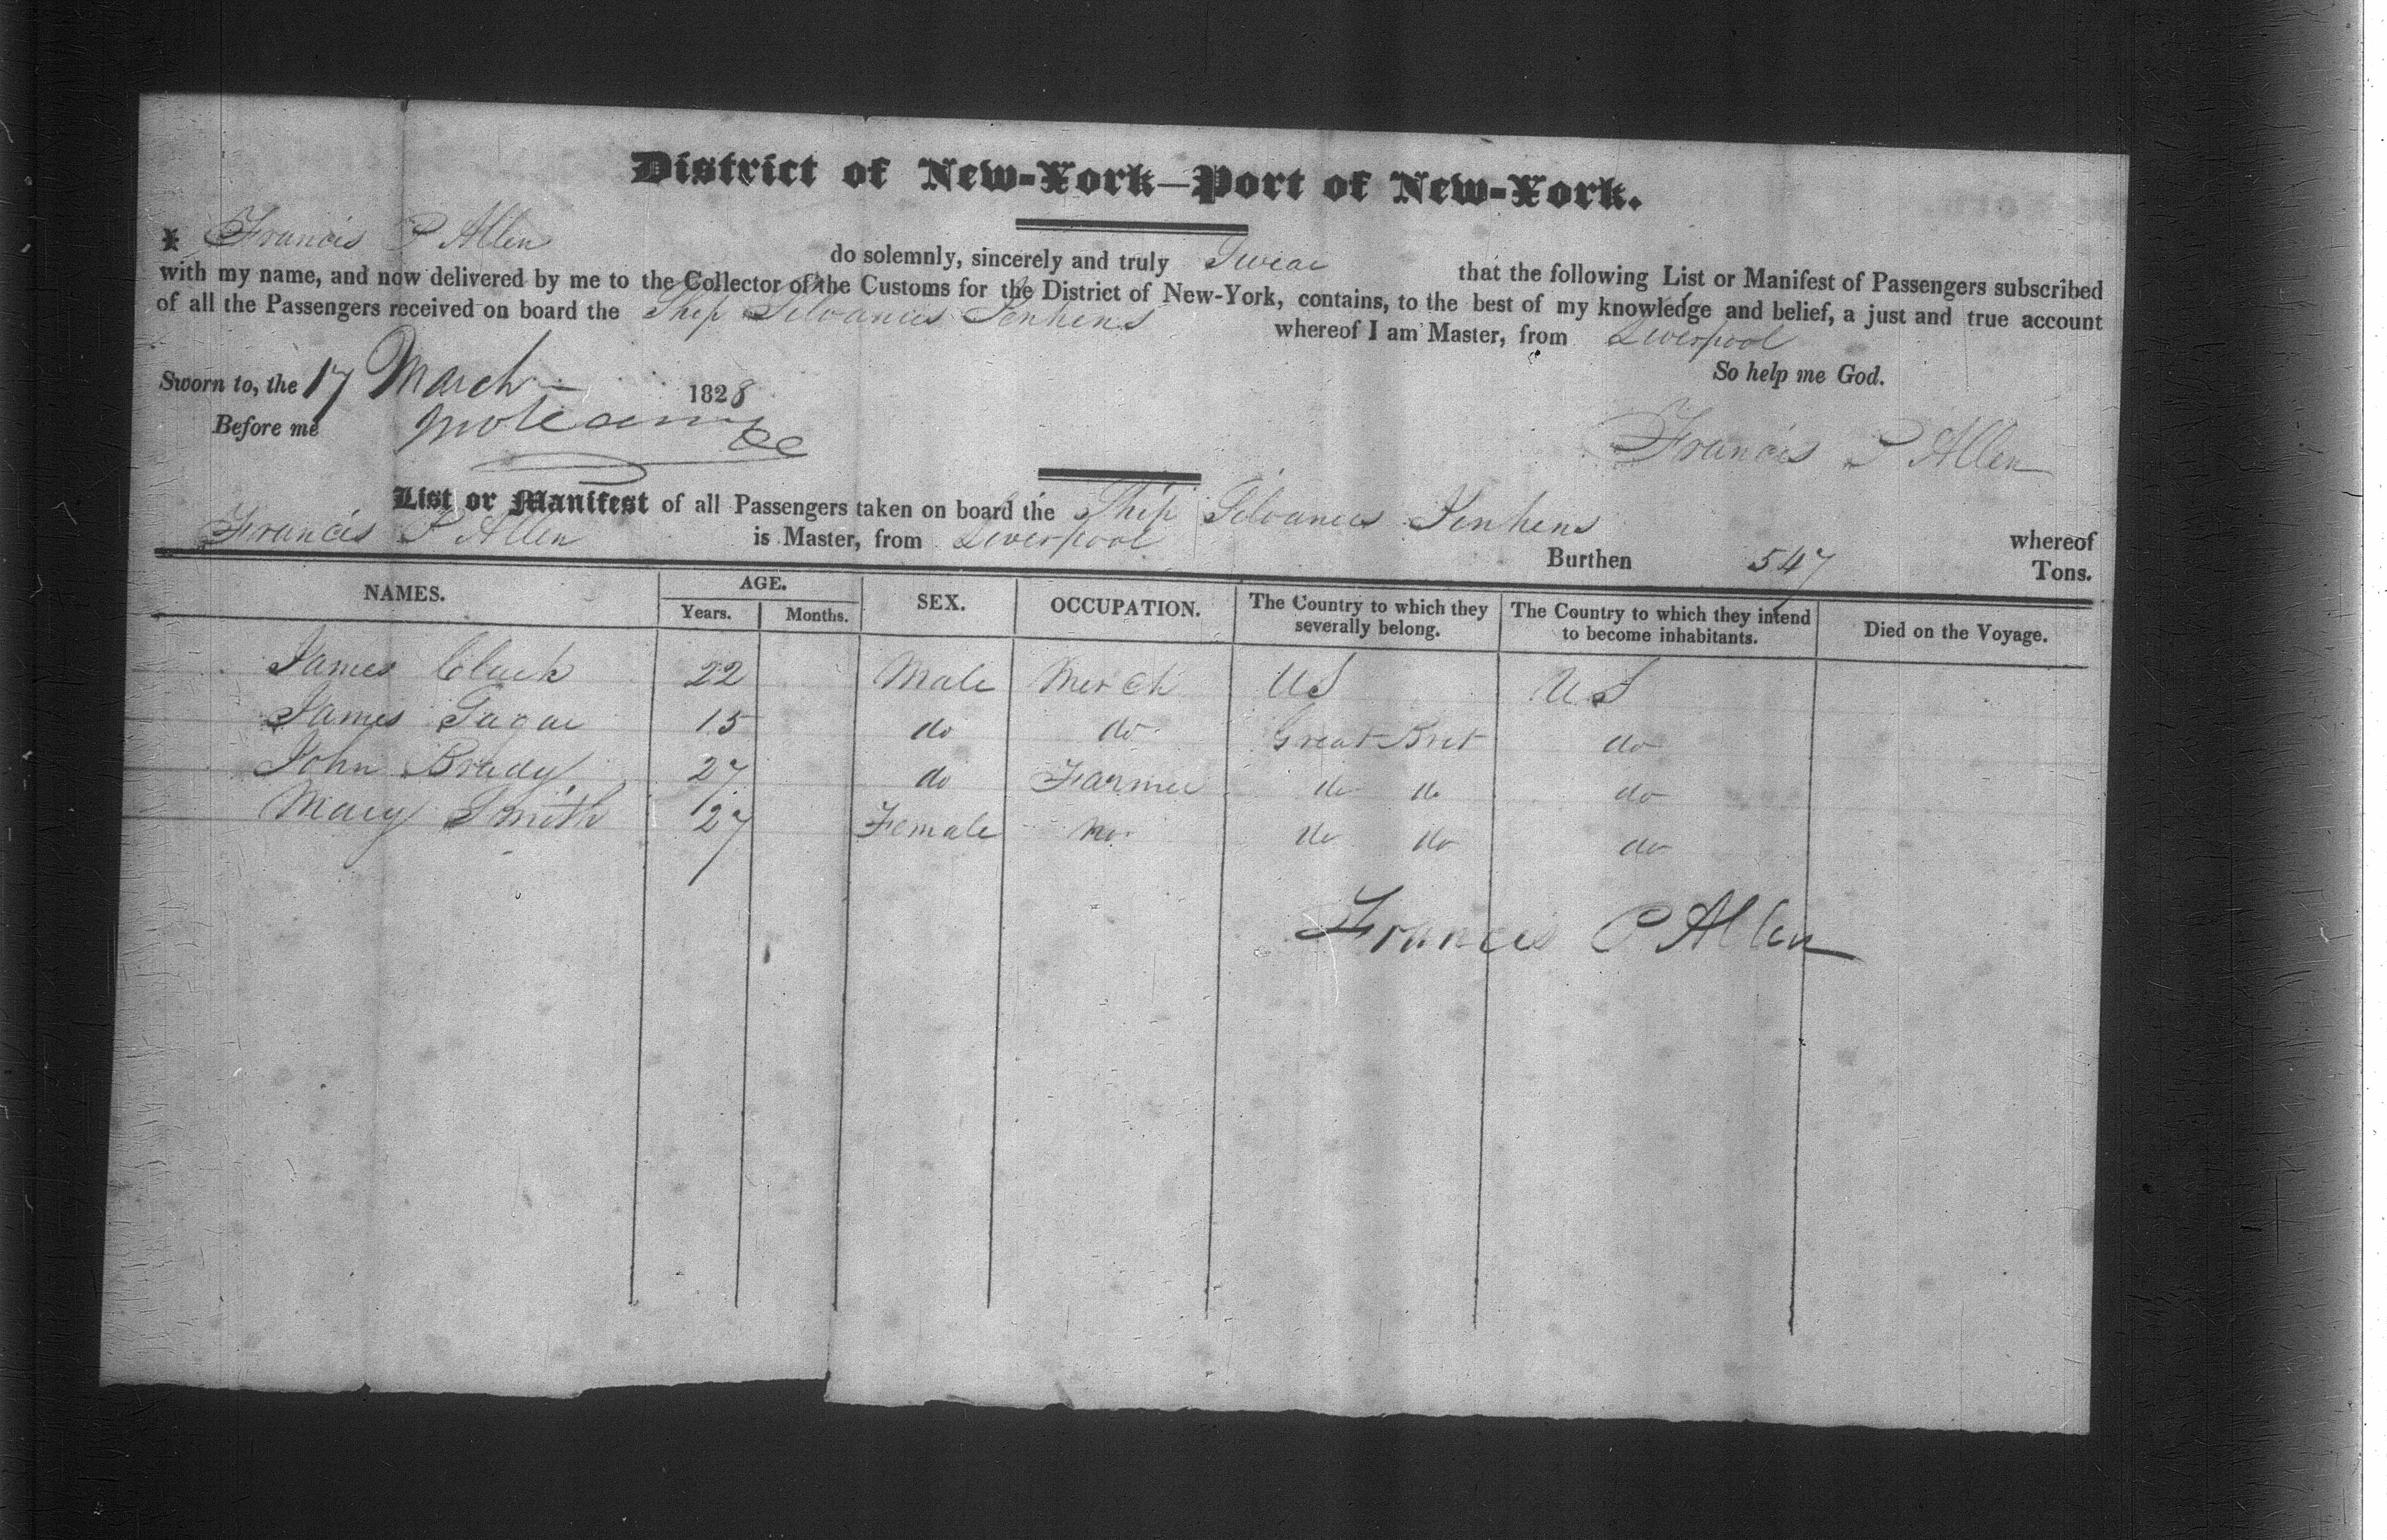 District of New-York—Port of New-York.
I Francis P Allen do solemnly, sincerely and truly Swear that the following List or Manifest of Passengers subscribed
with my name, and now delivered by me to the Collector of the Customs for the District of New-York, contains, to the best of my knowledge and belief, a just and true account
of all the Passengers received on board the Ship Silvanus Jenkens whereof I am Master, from Liverpool
So help me God.
Sworn to, the 17 March 1828
Before me
Francis P Allen
List or Manifest of all Passengers taken on board the Ship Silvanus Jenkens whereof
Francis P Allen is Master, from Liverpool Burthen 547 Tons.
NAMES. AGE. SEX. OCCUPATION. The Country to which they severally belong. The Country to which they intend to become inhabitants. Died on the Voyage.
Years. Months.
James 22 Male Merch US US
James 15 do do Great Brit do
John Brady 27 do Farmer do do do
Mary Smith 27 Female no do do do
Francis P Allen